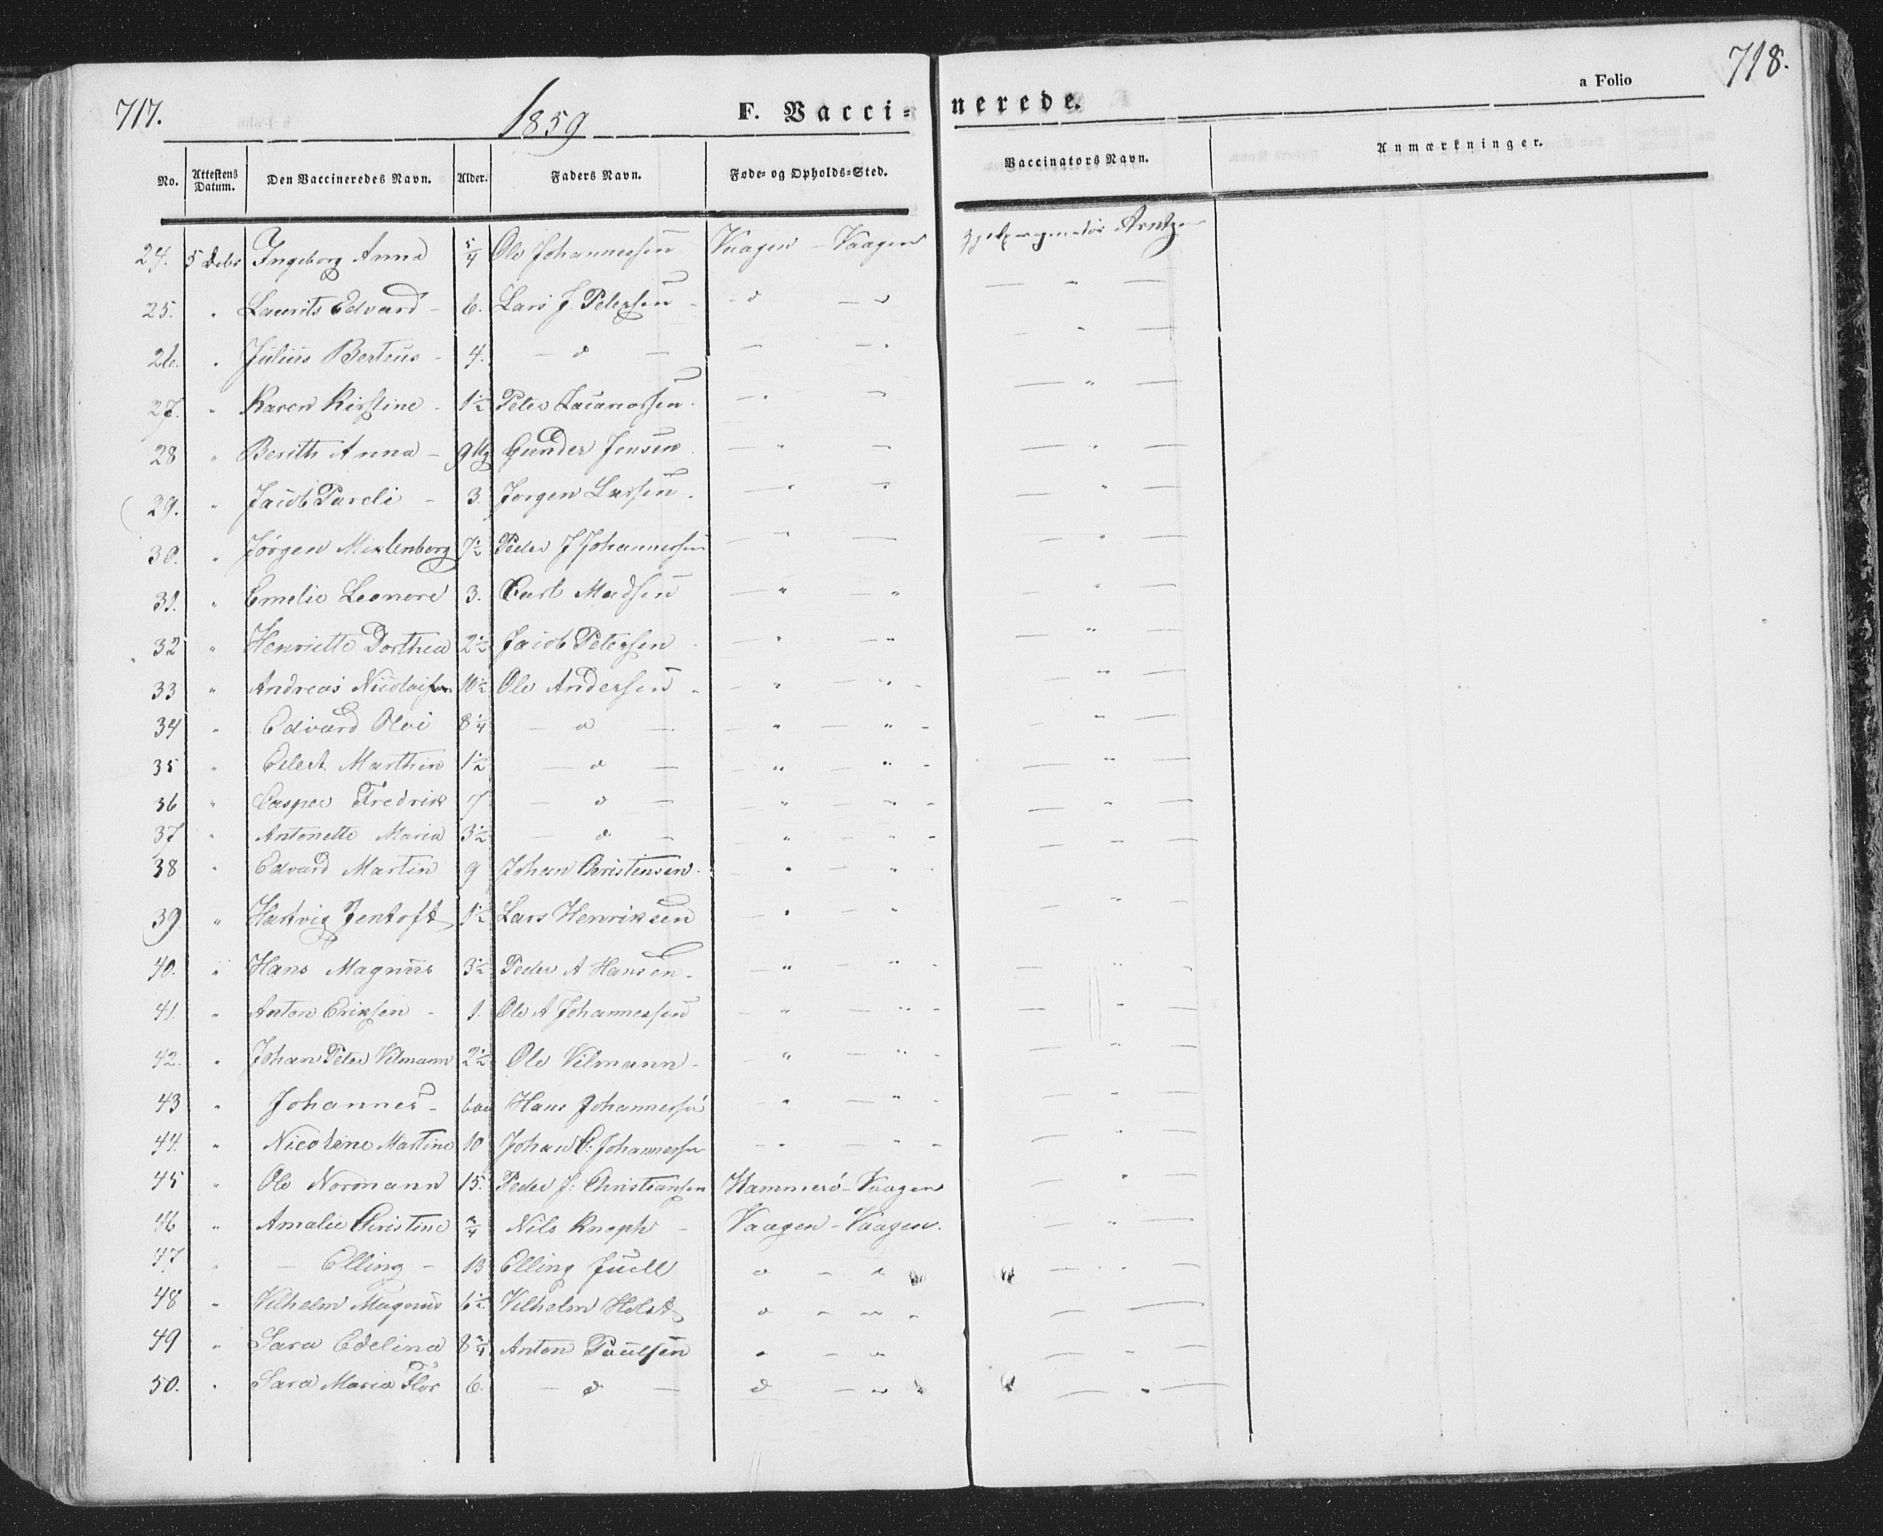 717.
1859
F. Vacci-
nerede.
a Folio
718.
No. Attestens Datum. Den Vaccineredes Navn. Alder. Faders Navn. Føde- og Opholds-Sted. Vaccinators Navn. Anmærkninger.
24. 5 Debr Ingeborg Anna 5/4 Ole Johannessen Vaagen - Vaagen Arntzen
25. " Laurits Edvard - 6. Lars J. Petersen - - d - " — " —
26. " Julius Berteus - 4. — d — — - " — " —
27. " Karen Kirstine - 1 1/2 Peter - " — — " —
28 " Berith Anna - 9 Gunder Jensen — " — — " —
29. " Jacob Pareli - 3. Jørgen Larsen — " — — " —
30. " Jørgen 7 1/2 Peder J Johannessen — " — — " —
31. " Emelie Leonore 3. Carl Madsen — " — " — " —
32 " Henriette Dorthea 2 1/2 Jacob Petersen — " — " — " —
33 " Andreas Nicolaisen 10 1/2 Ole Andersen - — " — " - — " —
34 " Edvard Olai 8 1/4 — d — — " — " - — " —
35 " Marthin 1 1/2 — d — — " — " - — " —
36 " Casper Fredrik 7 — d — — " — " - — " —
37 " Antonette Maria 3 1/2 — d — " — " - — " —
38 " Edvard Martin 9 Johan Christensen " — " - — " —
39 " Hartvig Jentoft 1 1/2 Lars Henriksen — " — " - — " —
40. " Hans Magnus 3 1/2 Peder A Hansen - — " — " - — " —
41. " Anton Eriksen - 1. Ole A Johannessen — " — " - — " —
42. " Johan Peter Vilmann 2 1/2 Ole Vilmann - — " — " - — " —
43 " Johannes - Hans Johannessen — " — " - — " —
44. " Nicoline Martine 10 Johan C. Johannessen — " — " - — " —
45 " Ole Normann 15 Peder J: Christiansen Hammerö - Vaagen — " —
46 " Amalie Christine Nils Knoph - Vaagen - Vaagen. — " —
47 " - Elling - 13 Elling Juell d - " — " —
48 " Vilhelm Magnus 6 1/2 Vilhelm Holst d - " - — —
49 " Sara Edelina 8 3/4 Anton Paulsen " - " — " —
50. " Sara Maria Flor 6. — d — d - " — " —